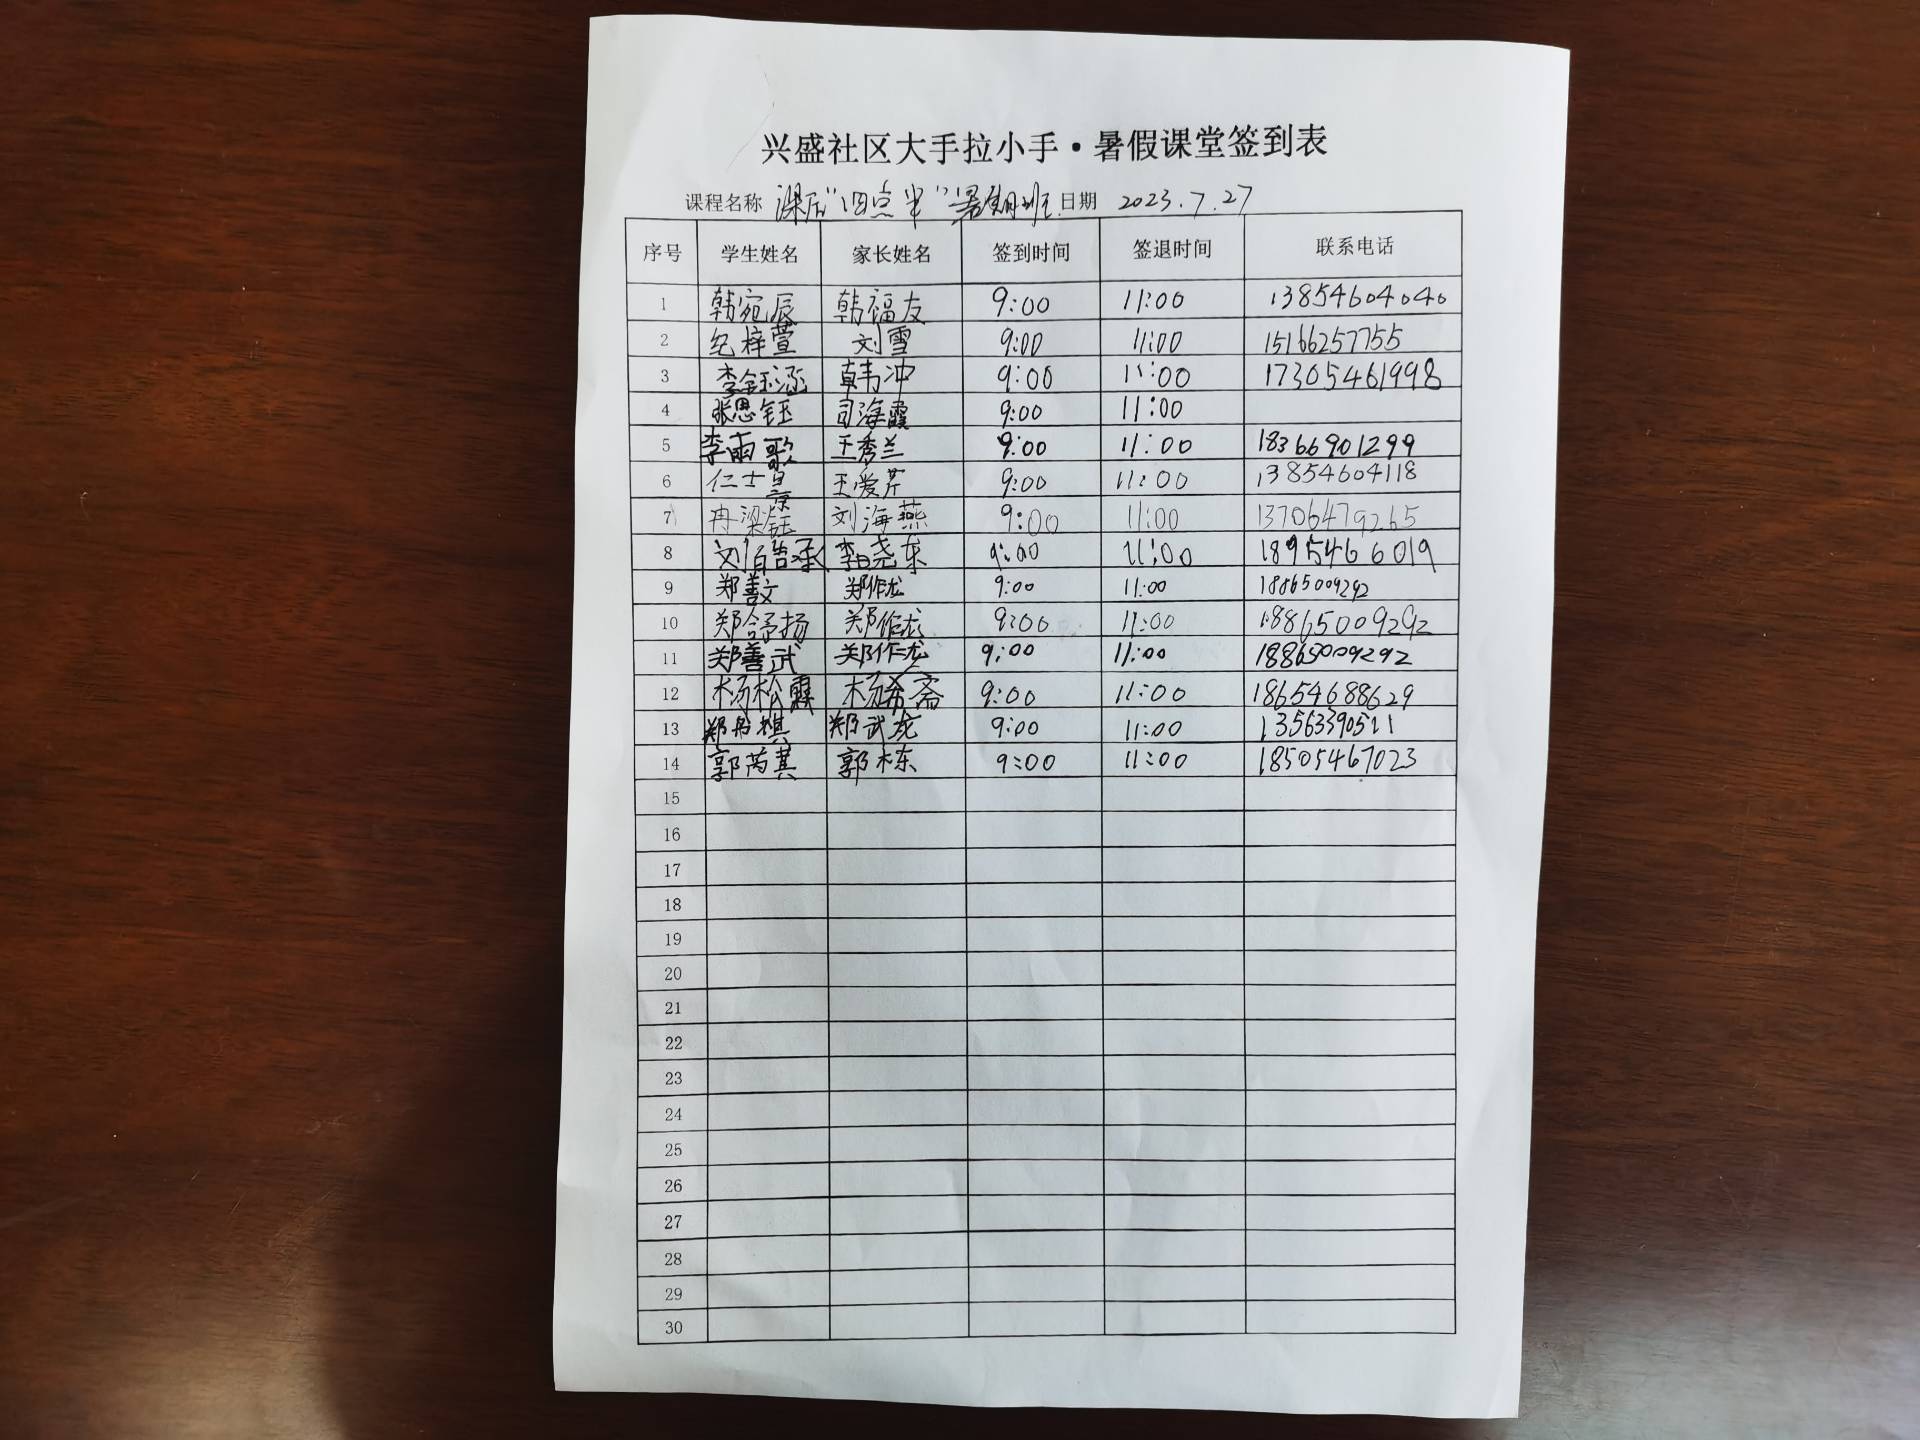 兴盛社区大手拉小手·暑假课堂签到表
课程名称 课后"四点半"暑期班 日期 2023.7.27
序号 学生姓名 家长姓名 签到时间 签退时间 联系电话
1 韩宛辰 韩福友 9:00 11:00 13854604040
2 纪梓萱 刘雪 9:00 11:00 15166257755
3 李钰涵 韩冲 9:00 11:00 17305461998
4 张恩钰 司海霞 9:00 11:00
5 李雨歌 王秀兰 9:00 11:00 18366901299
6 仁士景 王爱芹 9:00 11:00 13854604118
7 冉梁钰 刘海燕 9:00 11:00 13706479265
8 刘皓承 李晓东 9:00 11:00 18954666019
9 郑善文 郑作龙 9:00 11:00 18865009292
10 郑舒扬 郑作龙 9:00 11:00 18865009292
11 郑善武 郑作龙 9:00 11:00 18865009292
12 杨松霖 杨希斋 9:00 11:00 18654688629
13 郑棋 郑武龙 9:00 11:00 13563390511
14 郭芮其 郭栋 9:00 11:00 18505467023
15
16
17
18
19
20
21
22
23
24
25
26
27
28
29
30